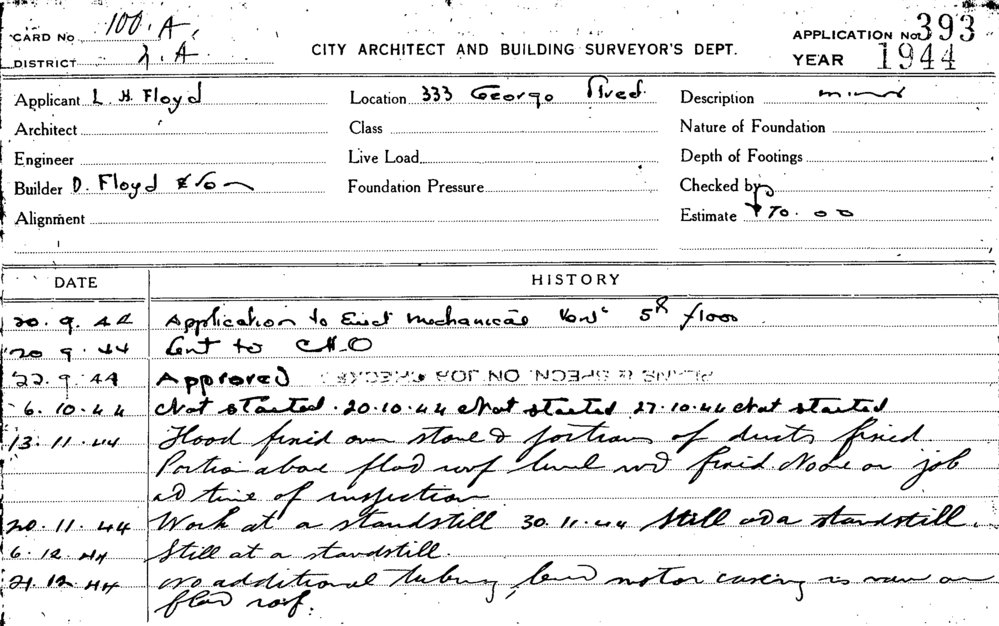 CARD No 100.A.
DISTRICT 2.A
CITY ARCHITECT AND BUILDING SURVEYOR'S DEPT.
APPLICATION No. 393
YEAR 1944
Applicant L. H. Floyd
Location 333 George Street
Description minor
Architect
Class
Nature of Foundation
Engineer
Live Load
Depth of Footings
Builder D. Floyd & Son
Foundation Pressure
Checked by
Alignment
Estimate £70.00
DATE HISTORY
20.9.44 Application to Erect Mechanical Vent 5th floor
20 9.44 Sent to C.H.O
22.9.44 Approved PLANS & SPECN. ON JOB CHECKED
6.10.44 Not started. 20.10.44 Not started 27.10.44 Not started
13.11.44 Hood fixed over stove & portions of ducts fixed.
Portion above flat roof level not fixed None on job
at time of inspection
20.11.44 Work at a standstill 30.11.44 Still at a standstill.
6.12.44 Still at a standstill.
21.12.44 No additional tubing, but motor casing is now on
flat roof.